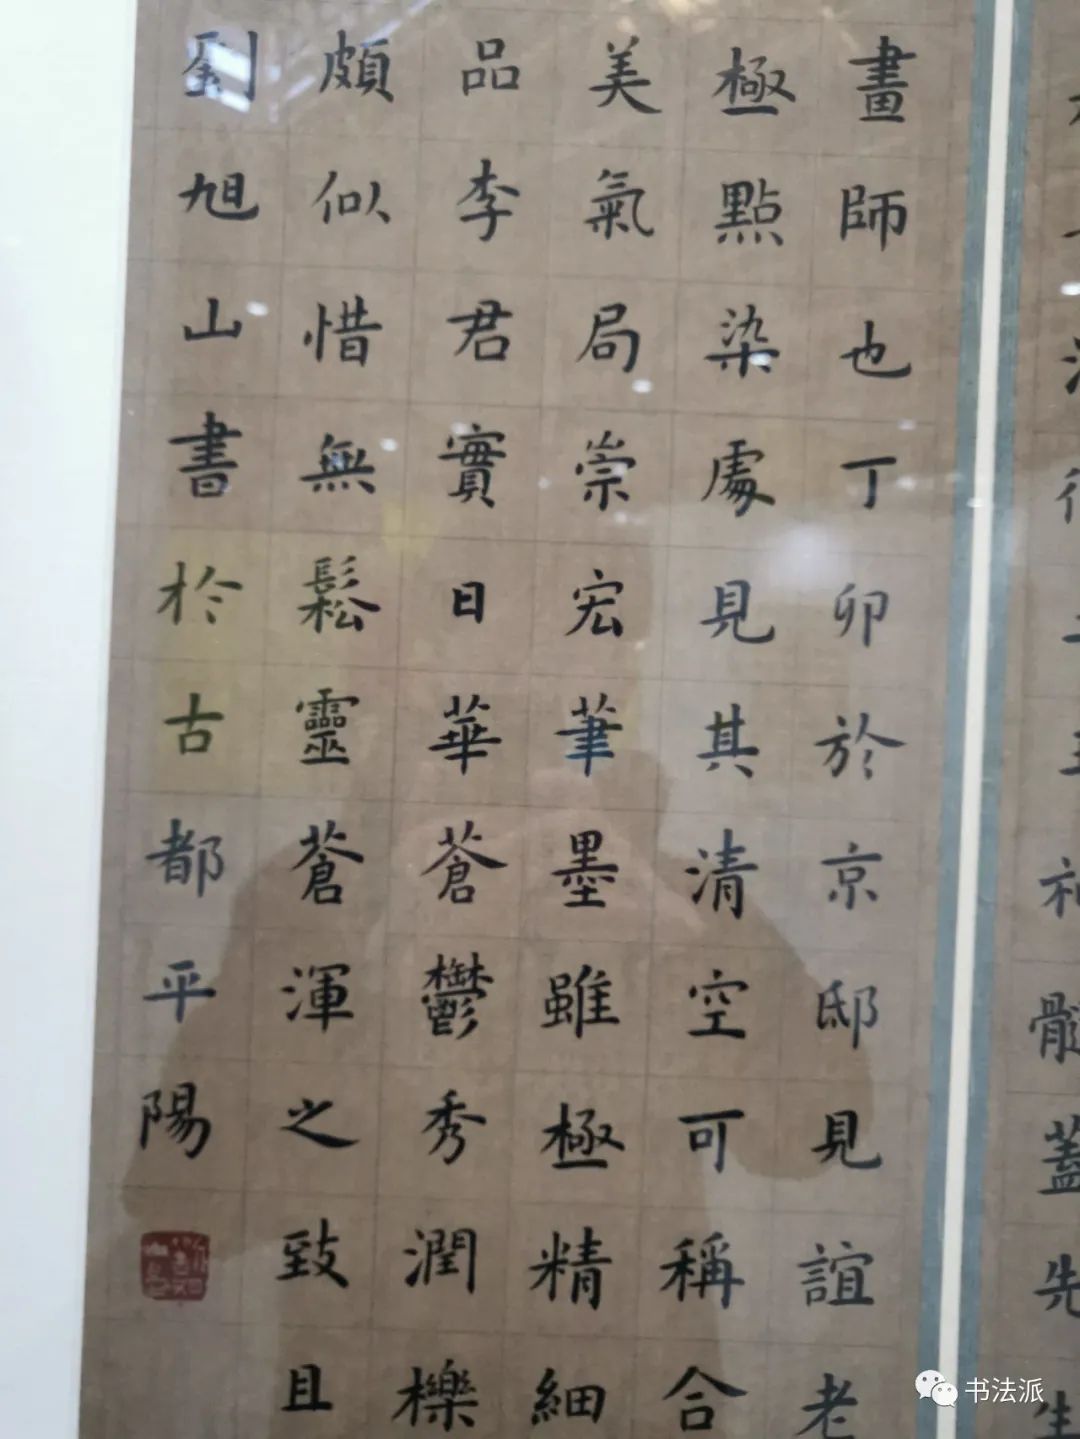 畫師也丁卯於京邸見誼老
極點染處見其清空可稱合
美氣局崇宏筆墨雖極精細
品李君實日華蒼鬱秀潤櫟
頗似惜無鬆靈蒼渾之致且
劉旭山書於古都平陽
髓蓋先生
书法派